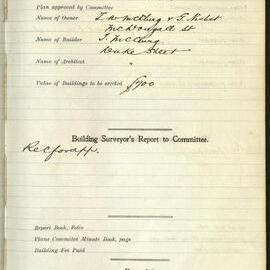 Plan approved by Committee
Name of Owner
McDougall St
Name of Builder J. McClurg
Duke Street
Name of Architect "
Value of Buildings to be erected £900
Building Surveyor's Report to Committee.
Rec for app.
Report Book, Folio
Plans Committee Minute Book, page
Building Fee Paid